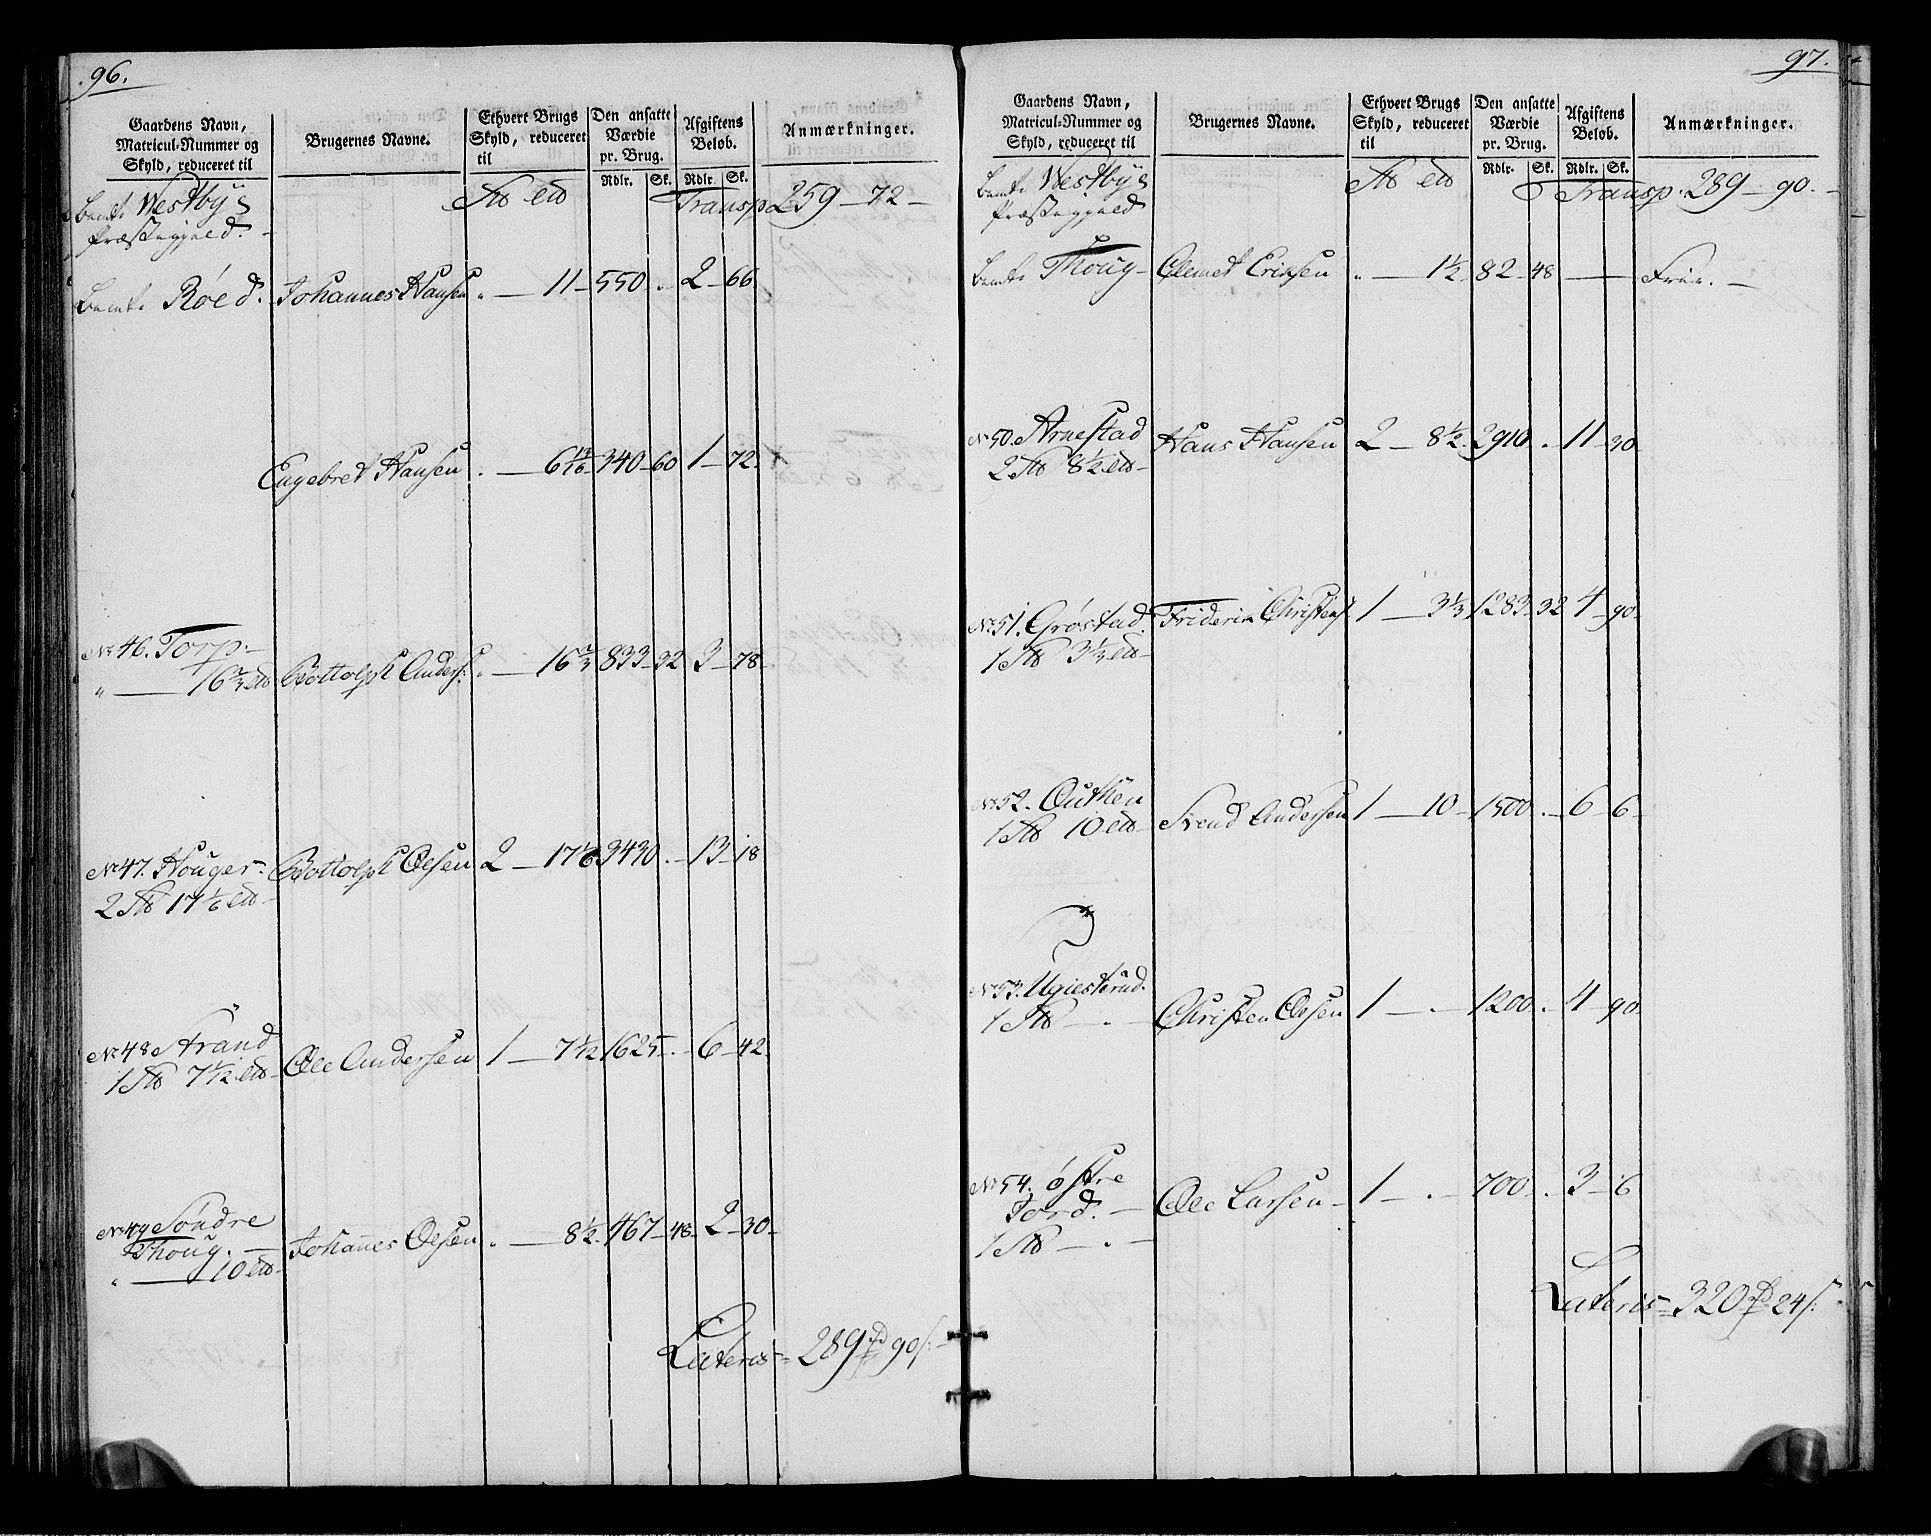 96.
Gaardens Navn, Matricul-Nummer og Skyld, reduceret til
Brugernes Navne.
Ethvert Brugs Skyld, reduceret til
Den ansatte Værdie pr. Brug.
Afgiftens Beløb.
Anmærkninger.
Rdlr. Sk. Rdlr. Sk.
Westbÿe Præstegjeld.
Transp 259 - 72 -
Røed. Johannes Hansen " — 11 - 550 . 2 - 66
Engebret Hansen . — 6 13/16 - 340 - 60 1 - 72.
No 46. Torp.
" — 16 2/3 Bottolph Anders: " — 16 2/3 833 - 32 3 - 78 -
No 47. Houger - Bottolph Olsen 2 — 17 1/6 3430 . - 13 - 18
2 17 1/6
No 48 Strand Ole Andersen 1 — 7 1/12 1625 . - 6 - 42
1 7 1/12
No 49 Søndre
Thoug. — Johannes Olsen . — 8 1/2 - 467 - 48 - 2 - 30 -
" — 10
Lateris = 289 rd 90 s:
97.
Gaardens Navn, Matricul-Nummer og Skyld, reduceret til
Brugernes Navne.
Ethvert Brugs Skyld, reduceret til
Den ansatte Værdie pr. Brug.
Afgiftens Beløb.
Anmærkninger.
Rdlr. Sk. Rdlr. Sk.
Westbÿe Præstegjeld
Transp. 289 - 90. -
Thoug - Clemet Ericsen " — 1 1/2 82 - 48 — Frie. -
No 50. Arnestad Hans Hansen 2 — 8 1/2 - 2910 . 11 - 30 -
2 8 1/2
No 51. Grøstad Frideric Christens. 1 — 3 1/3 1283 - 32 4 - 90 -
1 3 1/3
No 52. Outhen Svend Andersen 1 — 10 - 1500 . - 6 - 6 -
1 10
No 53. Ugiesterud. Christen Olsen 1 — . - 1200 . 4 - 90.
1 — . -
No 54. Østre
Tord. — Ole Larsen - 1 — . - 700 - . 3 - 6
1 — . -
Lateris = 320 rd 24 s: